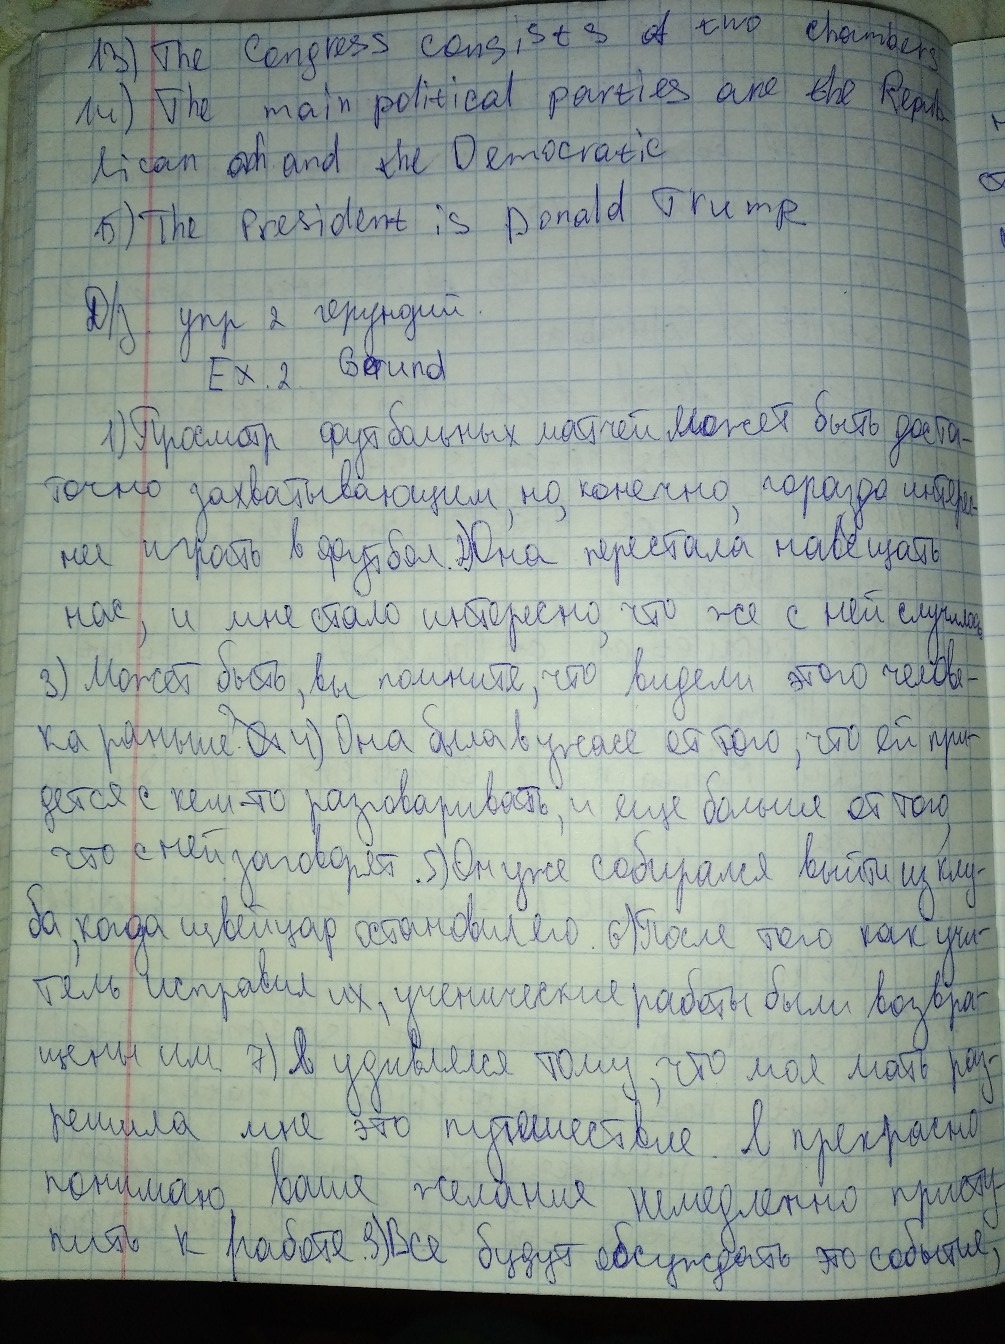 13) The Congress consists of two chambers
14) The main political parties are the Repub
lican and the Democratic
15) The President is Donald Trump
Д/з упр 2 герундий.
Ex. 2. Gerund
1) Просмотр футбольных матчей может быть доста-
точно захватывающим, но, конечно, гораздо интерес-
ней играть в футбол. 2) Она перестала навещать
нас, и мне стало интересно, что же с ней случилось
3) Может быть, вы помните, что видели этого челове-
ка раньше? 4) Она была в ужасе от того, что ей при-
дется с кем-то разговаривать, и еще больше от того,
что с ней заговорят. 5) Он уже собирался выйти из клу-
ба, когда швейцар остановил его. 6) После того как учи-
тель исправил их, ученические работы были возвра-
щены им. 7) Я удивлялся тому, что моя мать раз-
решила мне это путешествие. Я прекрасно
понимаю, ваше желание немедленно присту-
пить к работе. 9) Все будут обсуждать это событие,